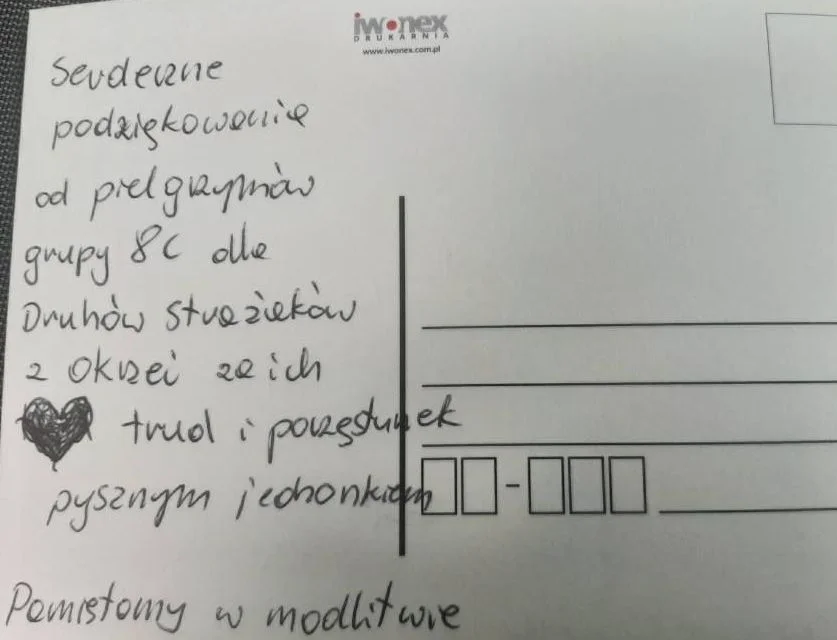 iwonex
DRUKARNIA
www.iwonex.com.pl
Serdeczne
podziękowanie
od pielgrzymów
grupy 8C dla
Druhów strażaków
z Okrzei za ich
trud i poczęstunek
pysznym jedzonkiem
Pamiętamy w modlitwie